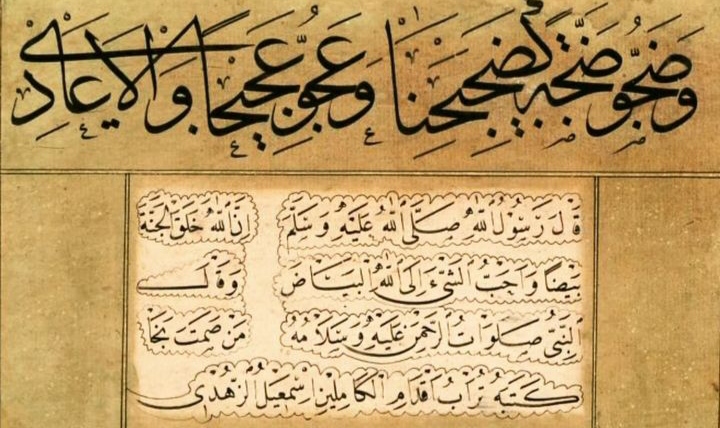 وَضَجُّو ضَجَّةً كَضَجِيجِنَا وَعَجُّو عَجِيجًا وَالْاَعَادِى
قَالَ رَسُولُ اللّٰهِ صَلَّى اللّٰهُ عَلَيْهِ وَسَلَّمَ اِنَّ اللّٰهَ خَلَقَ الْجَنَّةَ
بَيْضًا وَاَحَبُّ الشَّئِ اِلَى اللّٰهِ الْبَيَاضُ وَقَالَ
النَّبِىُّ صَلَوَاتُ الرَّحْمٰنِ عَلَيْهِ وَسَلَامُهُ مَنْ صَمَتَ نَجَا
كَتَبَهُ تُرَابُ اَقْدَامِ الْكَامِلِينَ اِسْمٰعِيلُ الزُّهْدِى